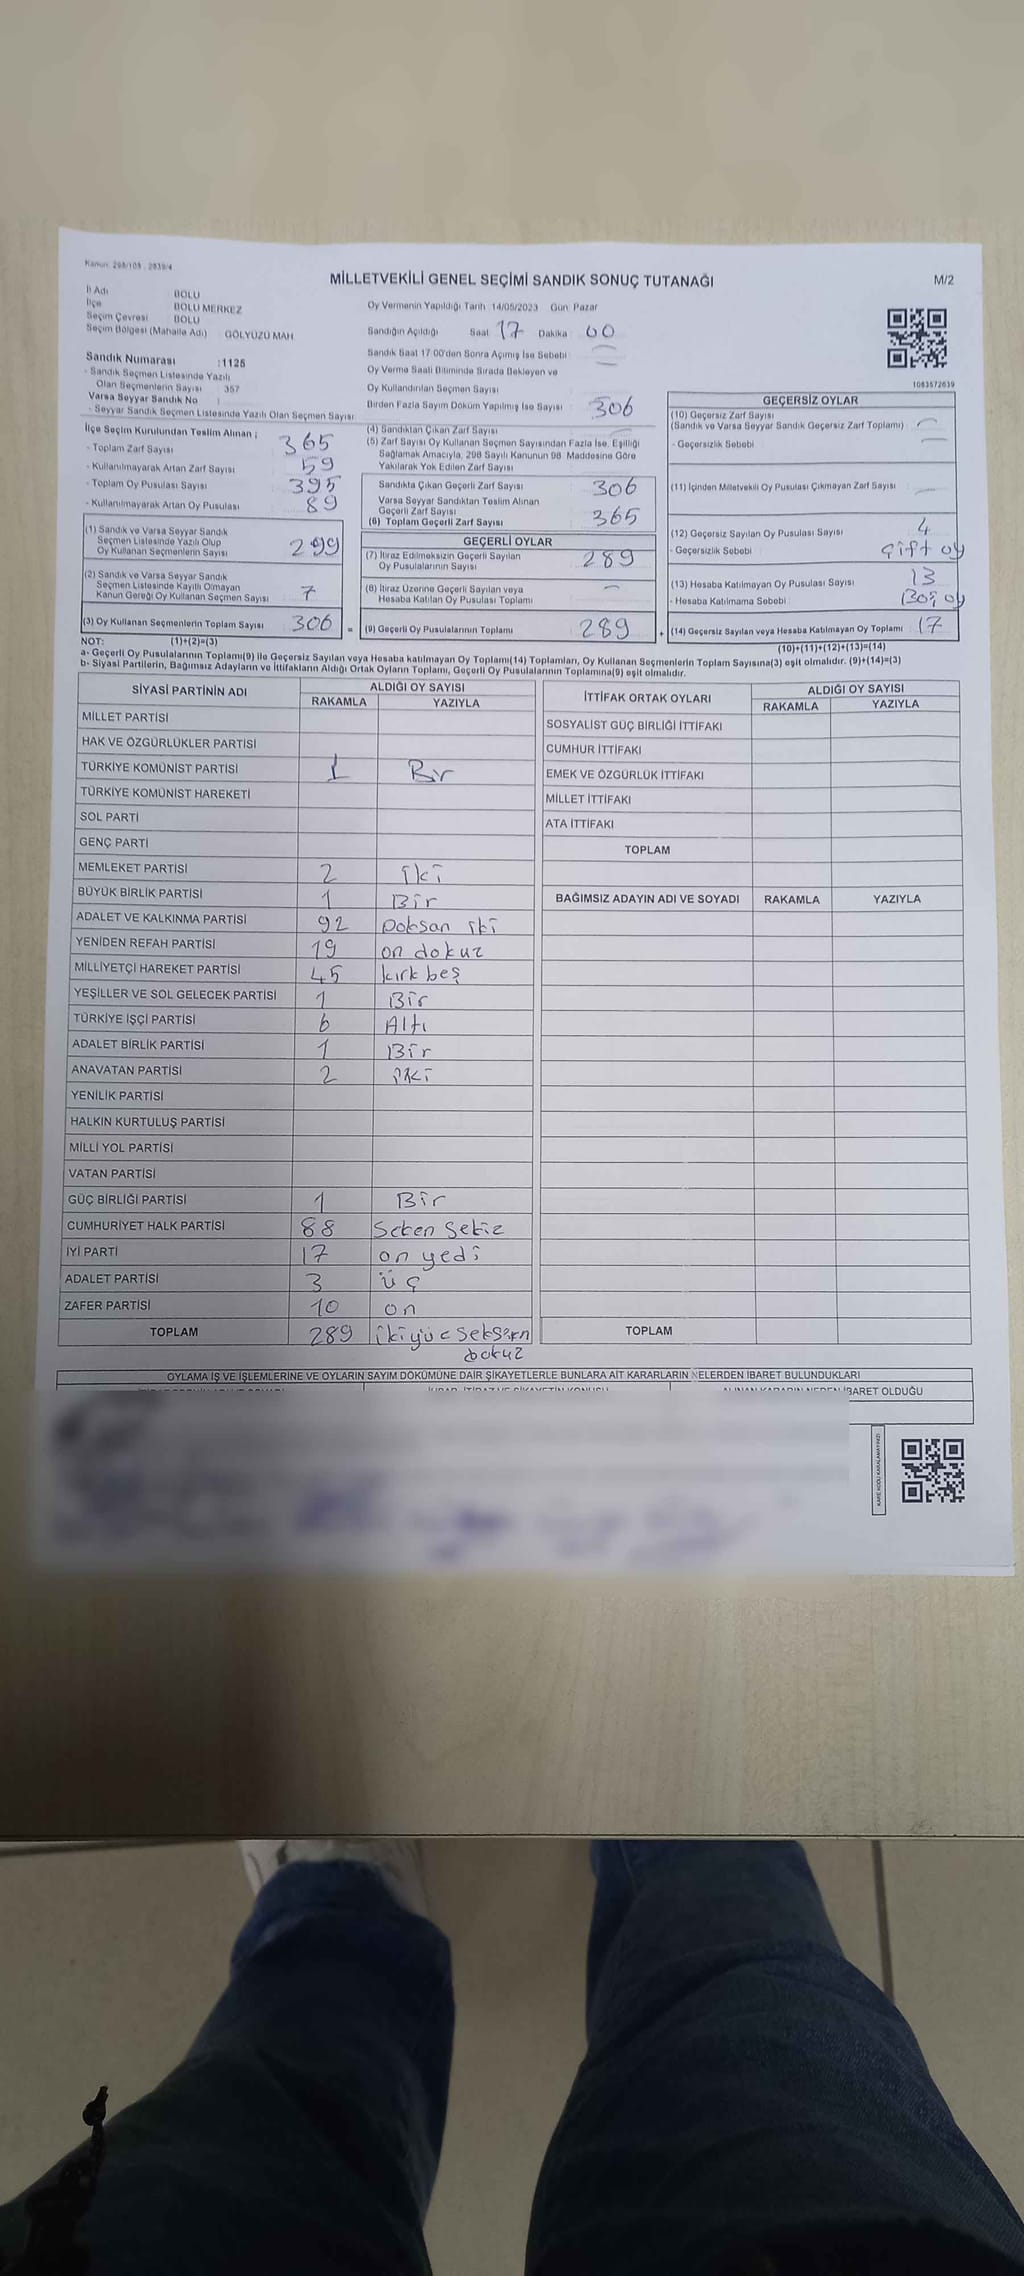 Kanun: 298/105 , 2839/4
MİLLETVEKİLİ GENEL SEÇİMİ SANDIK SONUÇ TUTANAĞI
M/2
İl Adı BOLU
İlçe BOLU MERKEZ
Seçim Çevresi BOLU
Seçim Bölgesi (Mahalle Adı) : GÖLYÜZÜ MAH.
Sandık Numarası :1125
- Sandık Seçmen Listesinde Yazılı
Olan Seçmenlerin Sayısı : 357
Varsa Seyyar Sandık No :
- Seyyar Sandık Seçmen Listesinde Yazılı Olan Seçmen Sayısı:
Oy Vermenin Yapıldığı Tarih: 14/05/2023 Gün: Pazar
Sandığın Açıldığı Saat 17 Dakika : 00
Sandık Saat 17:00'den Sonra Açılmış İse Sebebi : —
Oy Verme Saati Bitiminde Sırada Bekleyen ve
Oy Kullandırılan Seçmen Sayısı —
Birden Fazla Sayım Döküm Yapılmış İse Sayısı : 306
1083572639
İlçe Seçim Kurulundan Teslim Alınan ;
- Toplam Zarf Sayısı 365
- Kullanılmayarak Artan Zarf Sayısı 59
- Toplam Oy Pusulası Sayısı 395
- Kullanılmayarak Artan Oy Pusulası 89
(1) Sandık ve Varsa Seyyar Sandık
Seçmen Listesinde Yazılı Olup
Oy Kullanan Seçmenlerin Sayısı 299
(2) Sandık ve Varsa Seyyar Sandık
Seçmen Listesinde Kayıtlı Olmayan
Kanun Gereği Oy Kullanan Seçmen Sayısı : 7
(3) Oy Kullanan Seçmenlerin Toplam Sayısı : 306 =
(4) Sandıktan Çıkan Zarf Sayısı —
(5) Zarf Sayısı Oy Kullanan Seçmen Sayısından Fazla İse, Eşitliği
Sağlamak Amacıyla, 298 Sayılı Kanunun 98. Maddesine Göre
Yakılarak Yok Edilen Zarf Sayısı
Sandıkta Çıkan Geçerli Zarf Sayısı : 306
Varsa Seyyar Sandıktan Teslim Alınan
Geçerli Zarf Sayısı
(6) Toplam Geçerli Zarf Sayısı : 365
GEÇERLİ OYLAR
(7) İtiraz Edilmeksizin Geçerli Sayılan
Oy Pusulalarının Sayısı : 289
(8) İtiraz Üzerine Geçerli Sayılan veya
Hesaba Katılan Oy Pusulası Toplamı : —
(9) Geçerli Oy Pusulalarının Toplamı : 289 +
GEÇERSİZ OYLAR
(10) Geçersiz Zarf Sayısı
(Sandık ve Varsa Seyyar Sandık Geçersiz Zarf Toplamı) : —
- Geçersizlik Sebebi : —
(11) İçinden Milletvekili Oy Pusulası Çıkmayan Zarf Sayısı : —
(12) Geçersiz Sayılan Oy Pusulası Sayısı : 4
- Geçersizlik Sebebi : çift oy
(13) Hesaba Katılmayan Oy Pusulası Sayısı : 13
- Hesaba Katılmama Sebebi : Boş oy
(14) Geçersiz Sayılan veya Hesaba Katılmayan Oy Toplamı : 17
NOT: (1)+(2)=(3)
(10)+(11)+(12)+(13)=(14)
a- Geçerli Oy Pusulalarının Toplamı(9) ile Geçersiz Sayılan veya Hesaba katılmayan Oy Toplamı(14) Toplamları, Oy Kullanan Seçmenlerin Toplam Sayısına(3) eşit olmalıdır. (9)+(14)=(3)
b- Siyasi Partilerin, Bağımsız Adayların ve İttifakların Aldığı Ortak Oyların Toplamı, Geçerli Oy Pusulalarının Toplamına(9) eşit olmalıdır.
SİYASİ PARTİNİN ADI ALDIĞI OY SAYISI
RAKAMLA YAZIYLA
MİLLET PARTİSİ
HAK VE ÖZGÜRLÜKLER PARTİSİ
TÜRKİYE KOMÜNİST PARTİSİ 1 Bir
TÜRKİYE KOMÜNİST HAREKETİ
SOL PARTİ
GENÇ PARTİ
MEMLEKET PARTİSİ 2 iki
BÜYÜK BİRLİK PARTİSİ 1 Bir
ADALET VE KALKINMA PARTİSİ 92 Doksan iki
YENİDEN REFAH PARTİSİ 19 on dokuz
MİLLİYETÇİ HAREKET PARTİSİ 45 kırk beş
YEŞİLLER VE SOL GELECEK PARTİSİ 1 Bir
TÜRKİYE İŞÇİ PARTİSİ 6 Altı
ADALET BİRLİK PARTİSİ 1 Bir
ANAVATAN PARTİSİ 2 iki
YENİLİK PARTİSİ
HALKIN KURTULUŞ PARTİSİ
MİLLİ YOL PARTİSİ
VATAN PARTİSİ
GÜÇ BİRLİĞİ PARTİSİ 1 Bir
CUMHURİYET HALK PARTİSİ 88 Seksen Sekiz
İYİ PARTİ 17 on yedi
ADALET PARTİSİ 3 üç
ZAFER PARTİSİ 10 on
TOPLAM 289 ikiyüz seksen
dokuz
İTTİFAK ORTAK OYLARI ALDIĞI OY SAYISI
RAKAMLA YAZIYLA
SOSYALİST GÜÇ BİRLİĞİ İTTİFAKI
CUMHUR İTTİFAKI
EMEK VE ÖZGÜRLÜK İTTİFAKI
MİLLET İTTİFAKI
ATA İTTİFAKI
TOPLAM
BAĞIMSIZ ADAYIN ADI VE SOYADI RAKAMLA YAZIYLA
TOPLAM
OYLAMA İŞ VE İŞLEMLERİNE VE OYLARIN SAYIM DÖKÜMÜNE DAİR ŞİKAYETLERLE BUNLARA AİT KARARLARIN NELERDEN İBARET BULUNDUKLARI
ALINAN KARARIN NEDEN İBARET OLDUĞU
KARE KODU KARALAMAYINIZ!